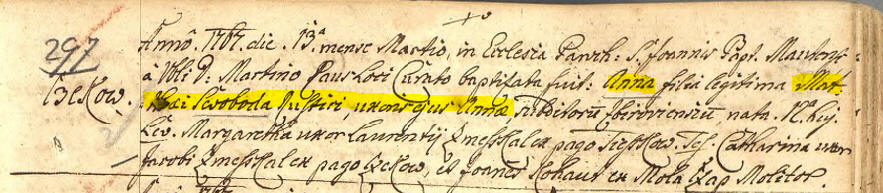 297
Anno. 1767. die. 13a mense Martio, in Ecclesia Paroch: S. Joannis Bapt.
à Vbli D: Martino Paus Loci Curato baptisata fuit: Anna filia legitima Mat-
Bzekow. thaei Swoboda Justiri, uxoris ejus Annae, subditorū Zbiroviensiū, nata 12a huj.
Lev. Margaretha uxor Laurentij Zmesskal ex pago Tiesskow. Tes. Catharina uxor
Jacobi Zmesskal ex pago Bzekow, et Joanes Lohaus ex Mola Molitor